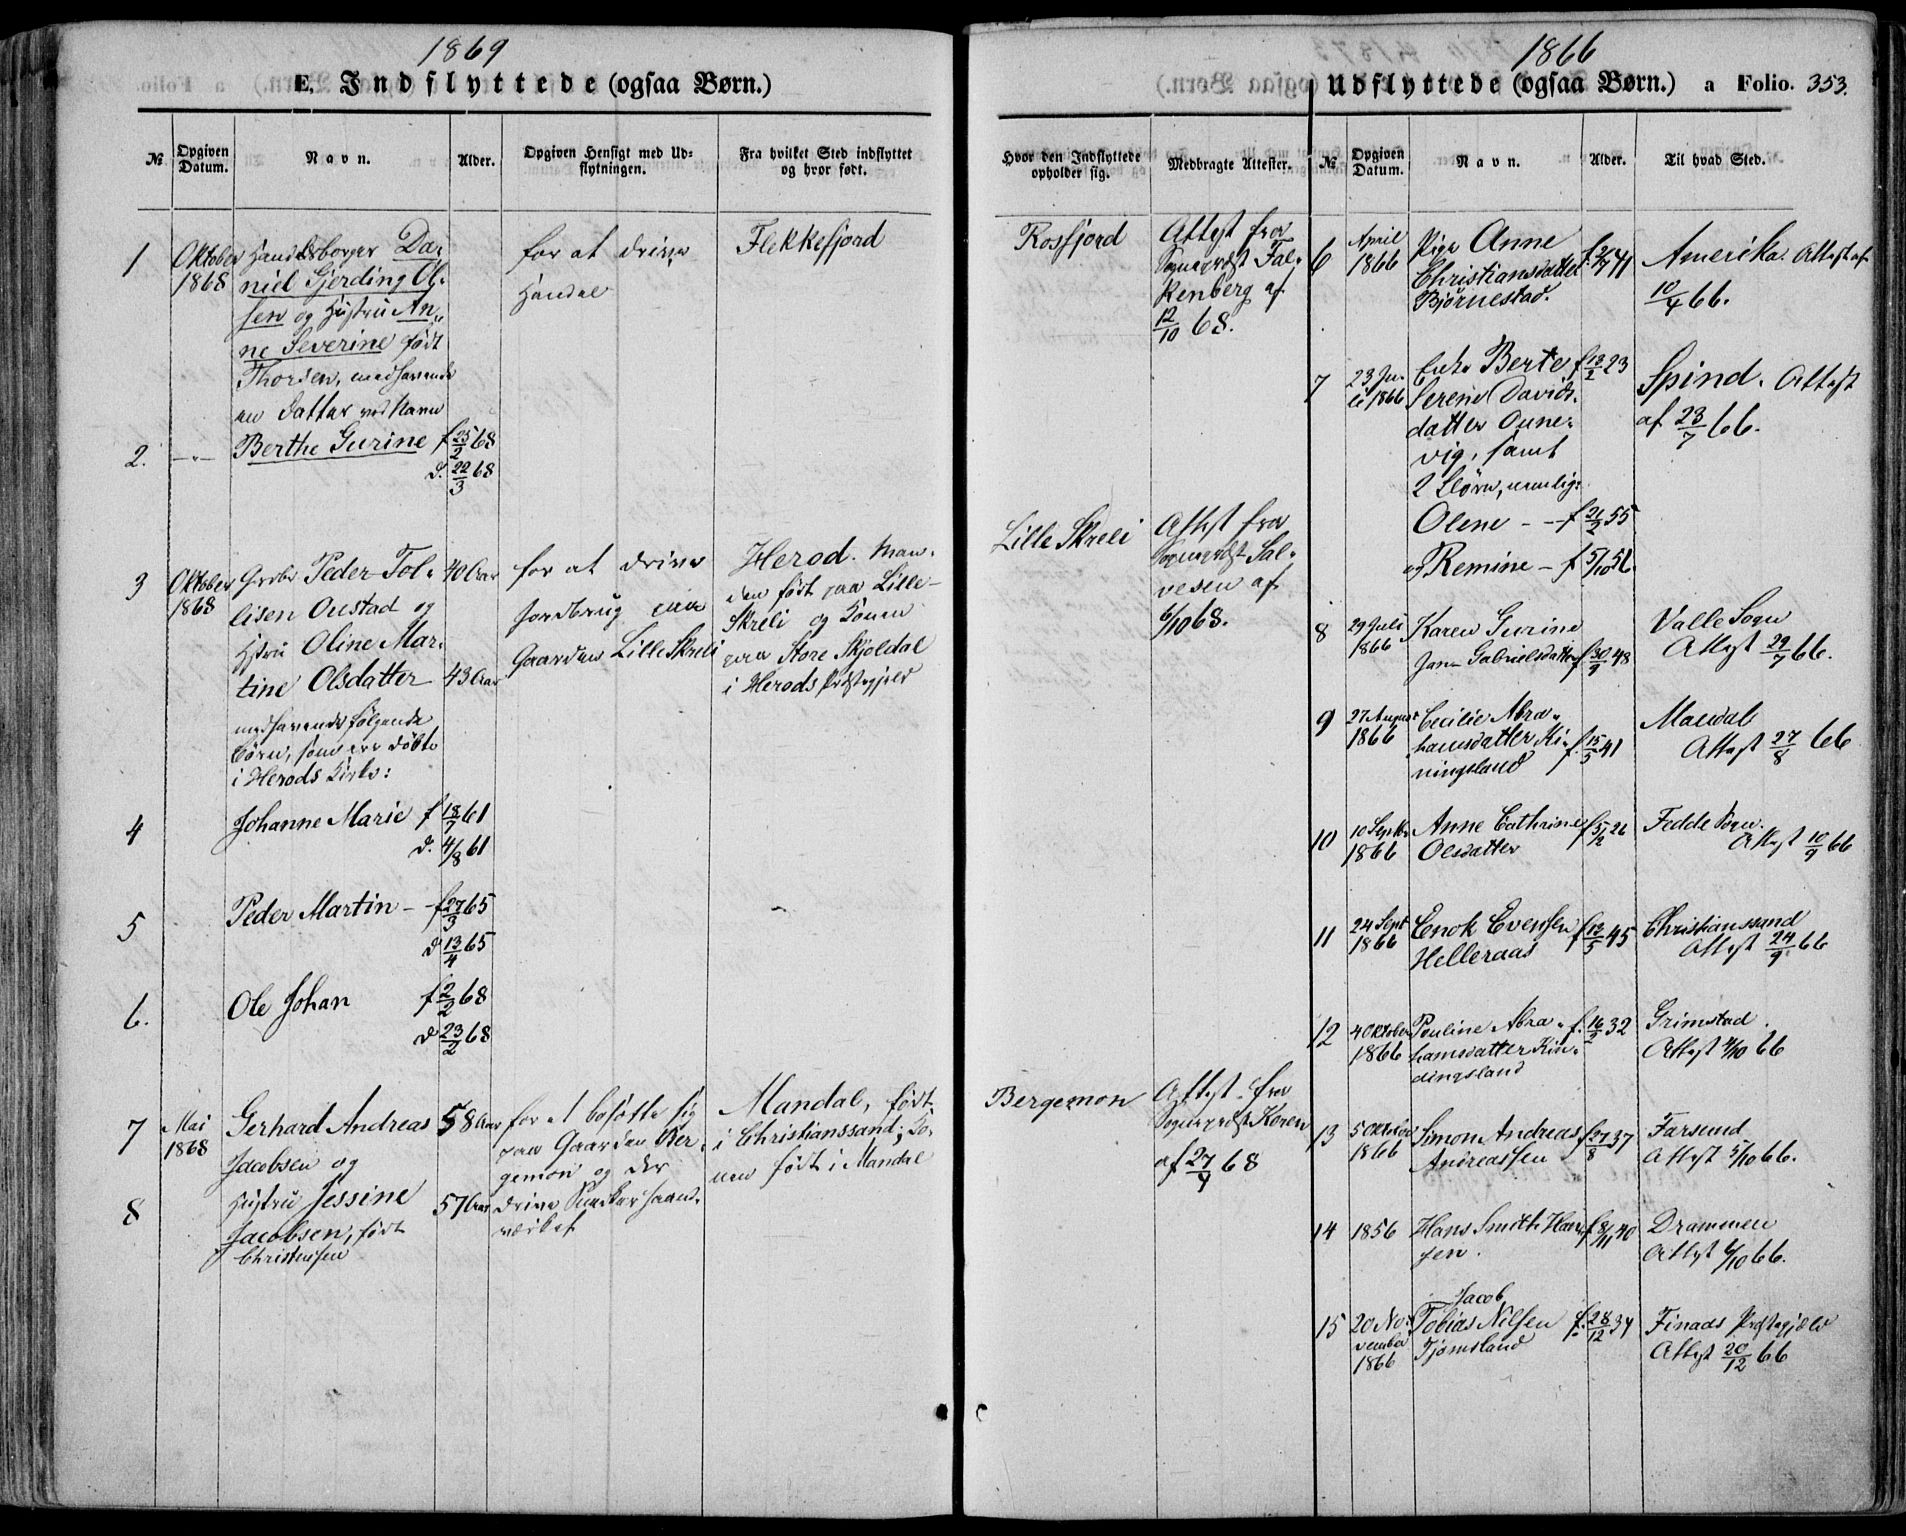 1869
E. Indflyttede (ogsaa Børn.)
№
Opgiven Datum.
Navn.
Alder.
Opgiven Hensigt med Ud-
flytningen.
Fra hvilket Sted indflyttet
og hvor født.
1
Oktober
1868
Handelsborger Da-
niel Gjerding Ol-
sen og Hustru An-
ne Severine født
Thorsen, medhavende
en Datter ved Navn
for at drive
Handel
Flekkefjord
2.
Berthe Gurine f 25/2 68
d. 22/3 68
3
Oktober
1868
Grdbr Peder Tol-
lisen Oustad og
Hstru Oline Mar-
tine Olsdatter
medhavende følgende
Børn, som ere døbte
i Herods Kirke:
40 Aar
43 Aar
for at drive
Jordbrug paa
Gaarden Lille Skreli
Herod. Man-
den født paa Lille-
Skreli og Konen
paa Store Skjoldal
i Herods Præstegjeld
4
Johanne Marie f 18/7 61
d. 4/8 61
5
Peder Martin - f 27/3 65
d 13/4 65
6.
Ole Johan f 2/2 68
d 23/2 68
7
Mai
1868
Gerhard Andreas
Jacobsen og
58 Aar
for at bosætte sig
paa Gaarden Ber-
gemon og der
Mandal, født
i Christianssand; Ko-
nen født i Mandal
8
Hustru Jessine
Jacobsen, født
Christensen
57 Aar
drive
1866
Udflyttede (ogsaa Børn.) a Folio. 353.
Hvor den Indflyttede
opholder sig.
Medbragte Attester.
№
Opgiven
Datum.
Navn.
Alder.
Til hvad Sted.
Rosfjord
Attest fra
Sognepræst Fal-
kenberg af
12/10 68.
Lille Skreli
Attest fra
Sognepræst Sal-
vesen af
6/10 68.
Bergemon
Attest fra
Sognepræst Koren
af 27/4 68
6
April
1866
Pige Anne
Christiansdatter
Bjørnestad.
Amerika. Attest af
10/4 66.
7
23 Ju-
li 1866
Enke Berte
Serene Davids-
datter Oune-
vig, samt
2 Børn, nemlig:
Olene - - f 21/2 55
og Remine - f 5/10 56
f 13/2 23
Spind. Attest
af 23/7 66.
8
29 Juli
1866
Karen Gurine
Jane Gabrielsdatter
f 30/9 48
Valle Sogn
Attest 29/7 66.
9
27 August
1866
Cecilie Abra-
hamsdatter Ki-
ningsland
f. 15/5 41
Mandal
Attest 27/8 66
10
10 Septbr
1866
Anne Cathrine
Olsdatter
f 5/12 26
Fedde Sogn.
Attest 10/9 66
11
24 Sept
1866
Enok Evensen
Helleraas
f 12/5 45
Christianssand
Attest 24/9 66
12
4 Oktober
1866
Pouline Abra-
hamsdatter Kin-
dingsland
f. 16/2 32
Grimstad
Attest 4/10 66
13
5 Oktober
1866
Simon Andreas
Andreassen
f 27/8 37
Farsund
Attest 5/10 66.
14
1856
Hans Smith Han-
sen.
f 8/11 40
Drammen
Attest 6/10 66.
15
20 No-
vember
1866
Jacob
Tobias Nilsen
Tjomsland
f. 28/12 34
Finaas Præstegjæld
Attest 20/12 66